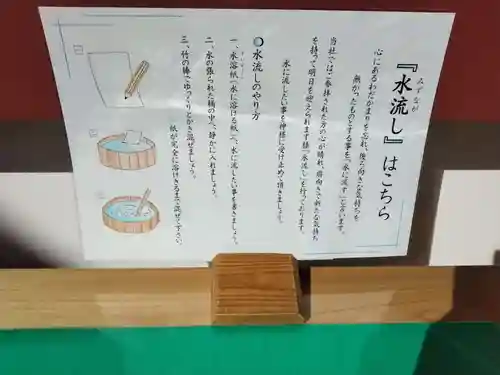 『水流し』はこちら
みずなが
心にあるわだかまりを忘れ、後ろ向きな気持ちを
無かったものとする事を、「水に流す」と言います。
当社ではご参拝された方の心が晴れ、前向きで新たな気持ち
を持って明日を迎えられます様、『水流し』を行っております。
水に流したい事を神様に受け止めて頂きましょう。
〇水流しのやり方
一、水溶紙(水に溶ける紙)に、水に流したい事を書きましょう。
すいようし
二、水の張られた桶の中へ、静かに入れましょう。
三、竹の棒でゆっくりとかき混ぜましょう。
紙が完全に溶けきるまで混ぜて下さい。
一
二
三